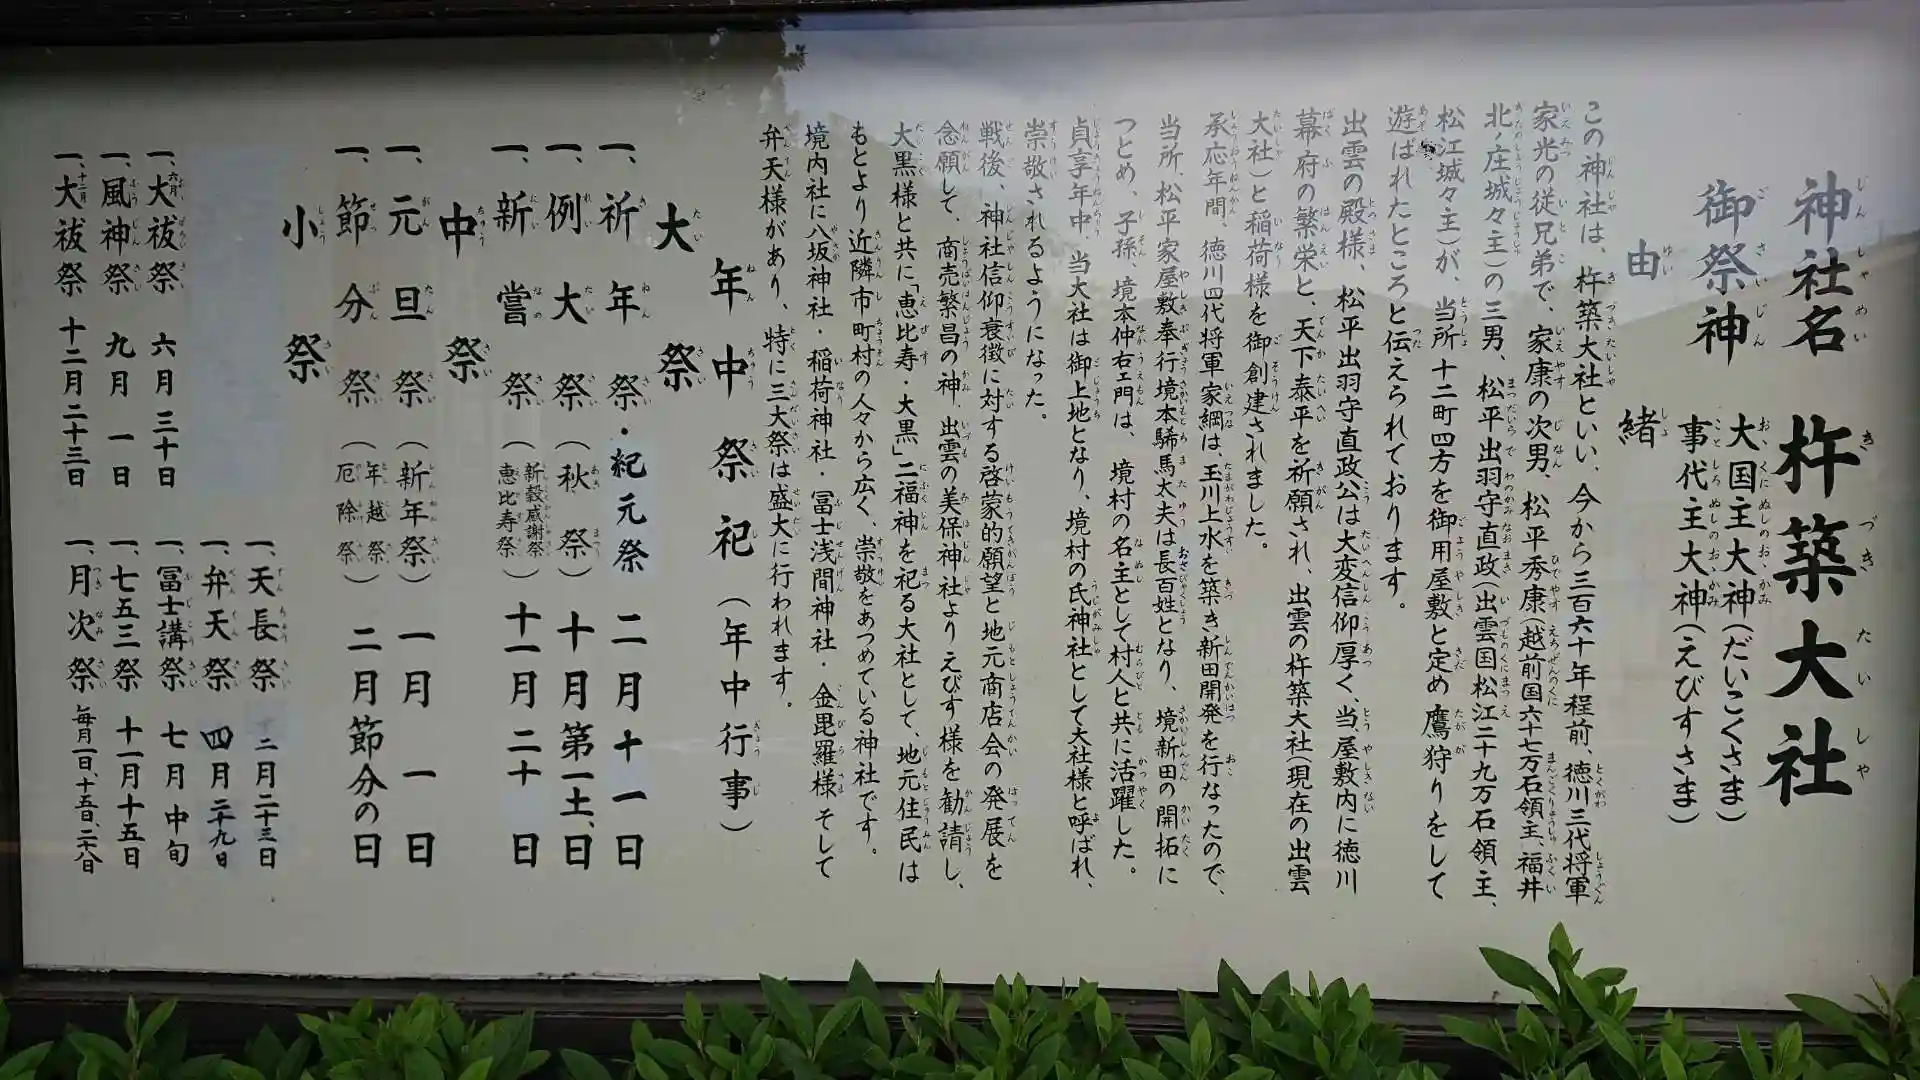 神社名 杵築大社
御祭神 大国主大神(だいこくさま)
事代主大神(えびすさま)
由緒
この神社は、杵築大社といい、今から三百六十年程前、徳川三代将軍
家光の従兄弟で、家康の次男、松平秀康(越前国六十七万石領主、福井
北ノ庄城々主)の三男、松平出羽守直政(出雲国松江二十九万石領主、
松江城々主)が、当所十二町四方を御用屋敷と定め鷹狩りをして
遊ばれたところと伝えられております。
出雲の殿様、松平出羽守直政公は大変信仰厚く、当屋敷内に徳川
幕府の繁栄と、天下泰平を祈願され、出雲の杵築大社(現在の出雲
大社)と稲荷様を御創建されました。
承応年間、徳川四代将軍家綱は、玉川上水を築き新田開発を行なったので、
当所、松平家屋敷奉行境本𩣆馬太夫は長百姓となり、境新田の開拓に
つとめ、子孫、境本仲右ェ門は、境村の名主として村人と共に活躍した。
貞享年中、当大社は御上地となり、境村の氏神社として大社様と呼ばれ、
崇敬されるようになった。
戦後、神社信仰衰徴に対する啓蒙的願望と地元商店会の発展を
念願して、商売繁昌の神、出雲の美保神社よりえびす様を勧請し、
大黒様と共に「恵比寿・大黒」二福神を祀る大社として、地元住民は
もとより近隣市町村の人々から広く、崇敬をあつめている神社です。
境内社に八坂神社・稲荷神社・冨士浅間神社・金毘羅様そして
弁天様があり、特に三大祭は盛大に行われます。
年中祭祀(年中行事)
大祭
一、祈年祭・紀元祭 二月十一日
一、例大祭(秋祭) 十月第一土、日
一、新嘗祭(新穀感謝祭 恵比寿祭) 十一月二十日
中祭
一、元旦祭(新年祭) 一月一日
一、節分祭(年越祭 厄除祭) 二月節分の日
小祭
一、天長祭 十二月二十三日
一、弁天祭 四月二十九日
一、六月大祓祭 六月三十日
一、冨士講祭 七月中旬
一、風神祭 九月一日
一、七五三祭 十一月十五日
一、十二月大祓祭 十二月二十三日
一、月次祭 毎月一日、十五日、二十八日